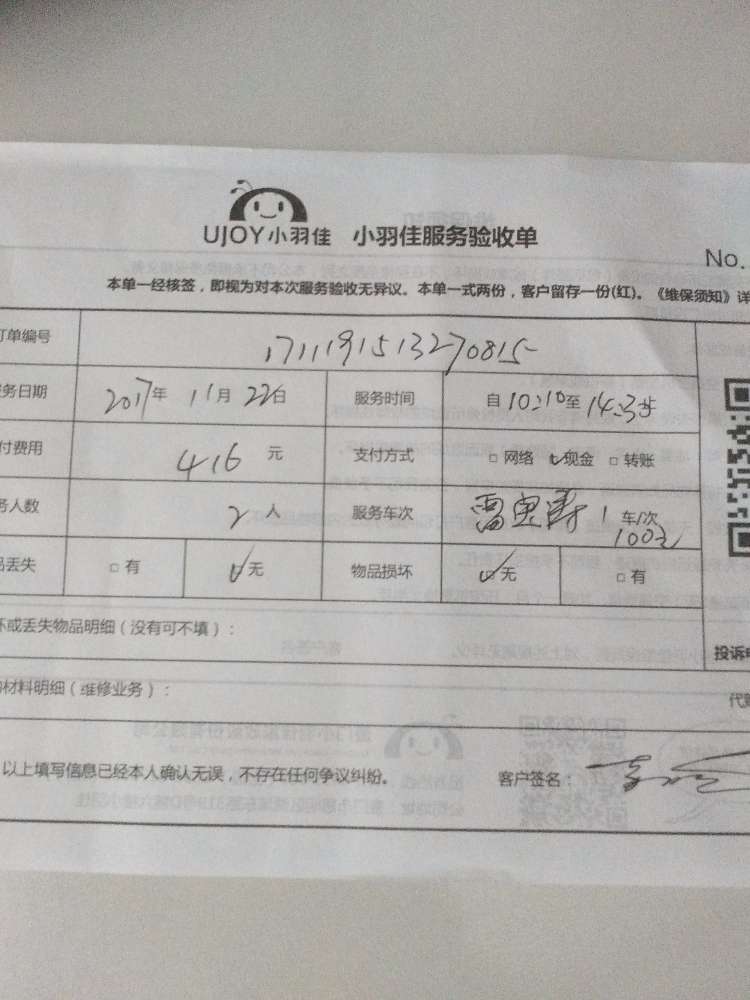 UJOY小羽佳 小羽佳服务验收单
No.
本单一经核签，即视为对本次服务验收无异议。本单一式两份，客户留存一份(红)。《维保须知》详
订单编号 1711191513270815
务日期 2017年 11月 22日 服务时间 自 10:10至 14:3
付费用 416 元 支付方式 □ 网络 ✓现金 □ 转账
务人数 2 人 服务车次 1 车/次
100元
品丢失 □ 有 ✓无 物品损坏 ✓无 □ 有
坏或丢失物品明细（没有可不填）：
投诉电
材料明细（维修业务）：
以上填写信息已经本人确认无误，不存在任何争议纠纷。 客户签名：